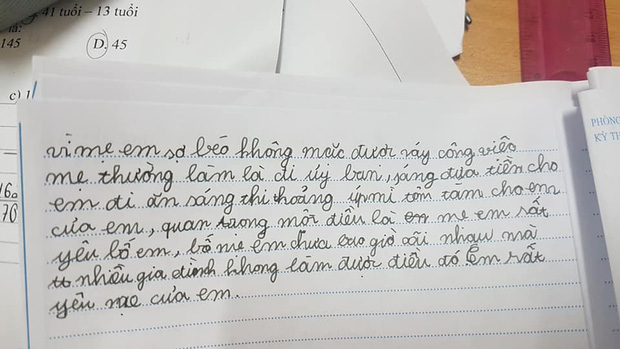 41 tuổi – 13 tuổi
là:
145
D. 45
c) 1
16
70
PHÒNG
KỲ TH
vì mẹ em sợ béo không mặc được váy công việc
mẹ thường làm là đi uỷ ban, sáng đưa tiền cho
em đi ăn sáng thi thoảng úp mì tôm cho em
của em, quan tượng mỗi điều là mẹ em rất
yêu bố em, bố mẹ em chưa bao giờ cãi nhau mà
nhiều gia đình không làm được điều đó Em rất
yêu mẹ của em.